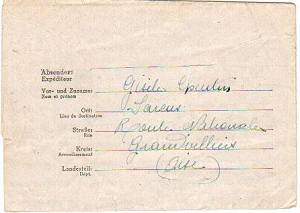 Absender:
Expéditeur
Vor- und Zuname:
Nom et prénom
Ort:
Lieu de Destination
Straße:
Rue
Route Nationale
Kreis:
Arrondissement
Grandvilliers
Landesteil:
Dépt.
(Oise)